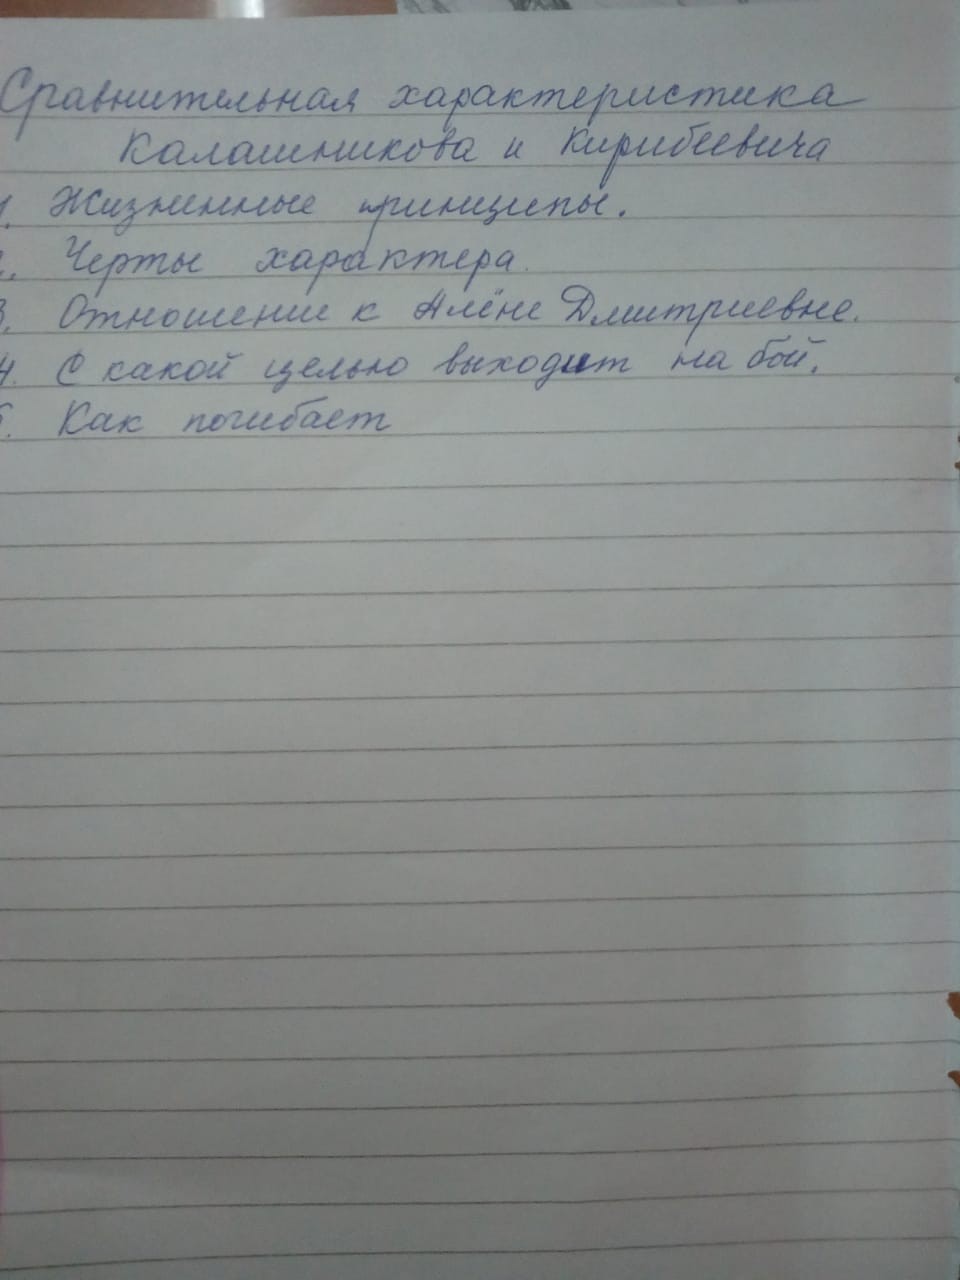 Сравнительная характеристика
Калашникова и Кирибеевича
1. Жизненные принципы.
2. Черты характера.
3. Отношение к Алёне Дмитриевне.
4. С какой целью выходит на бой.
5. Как погибает